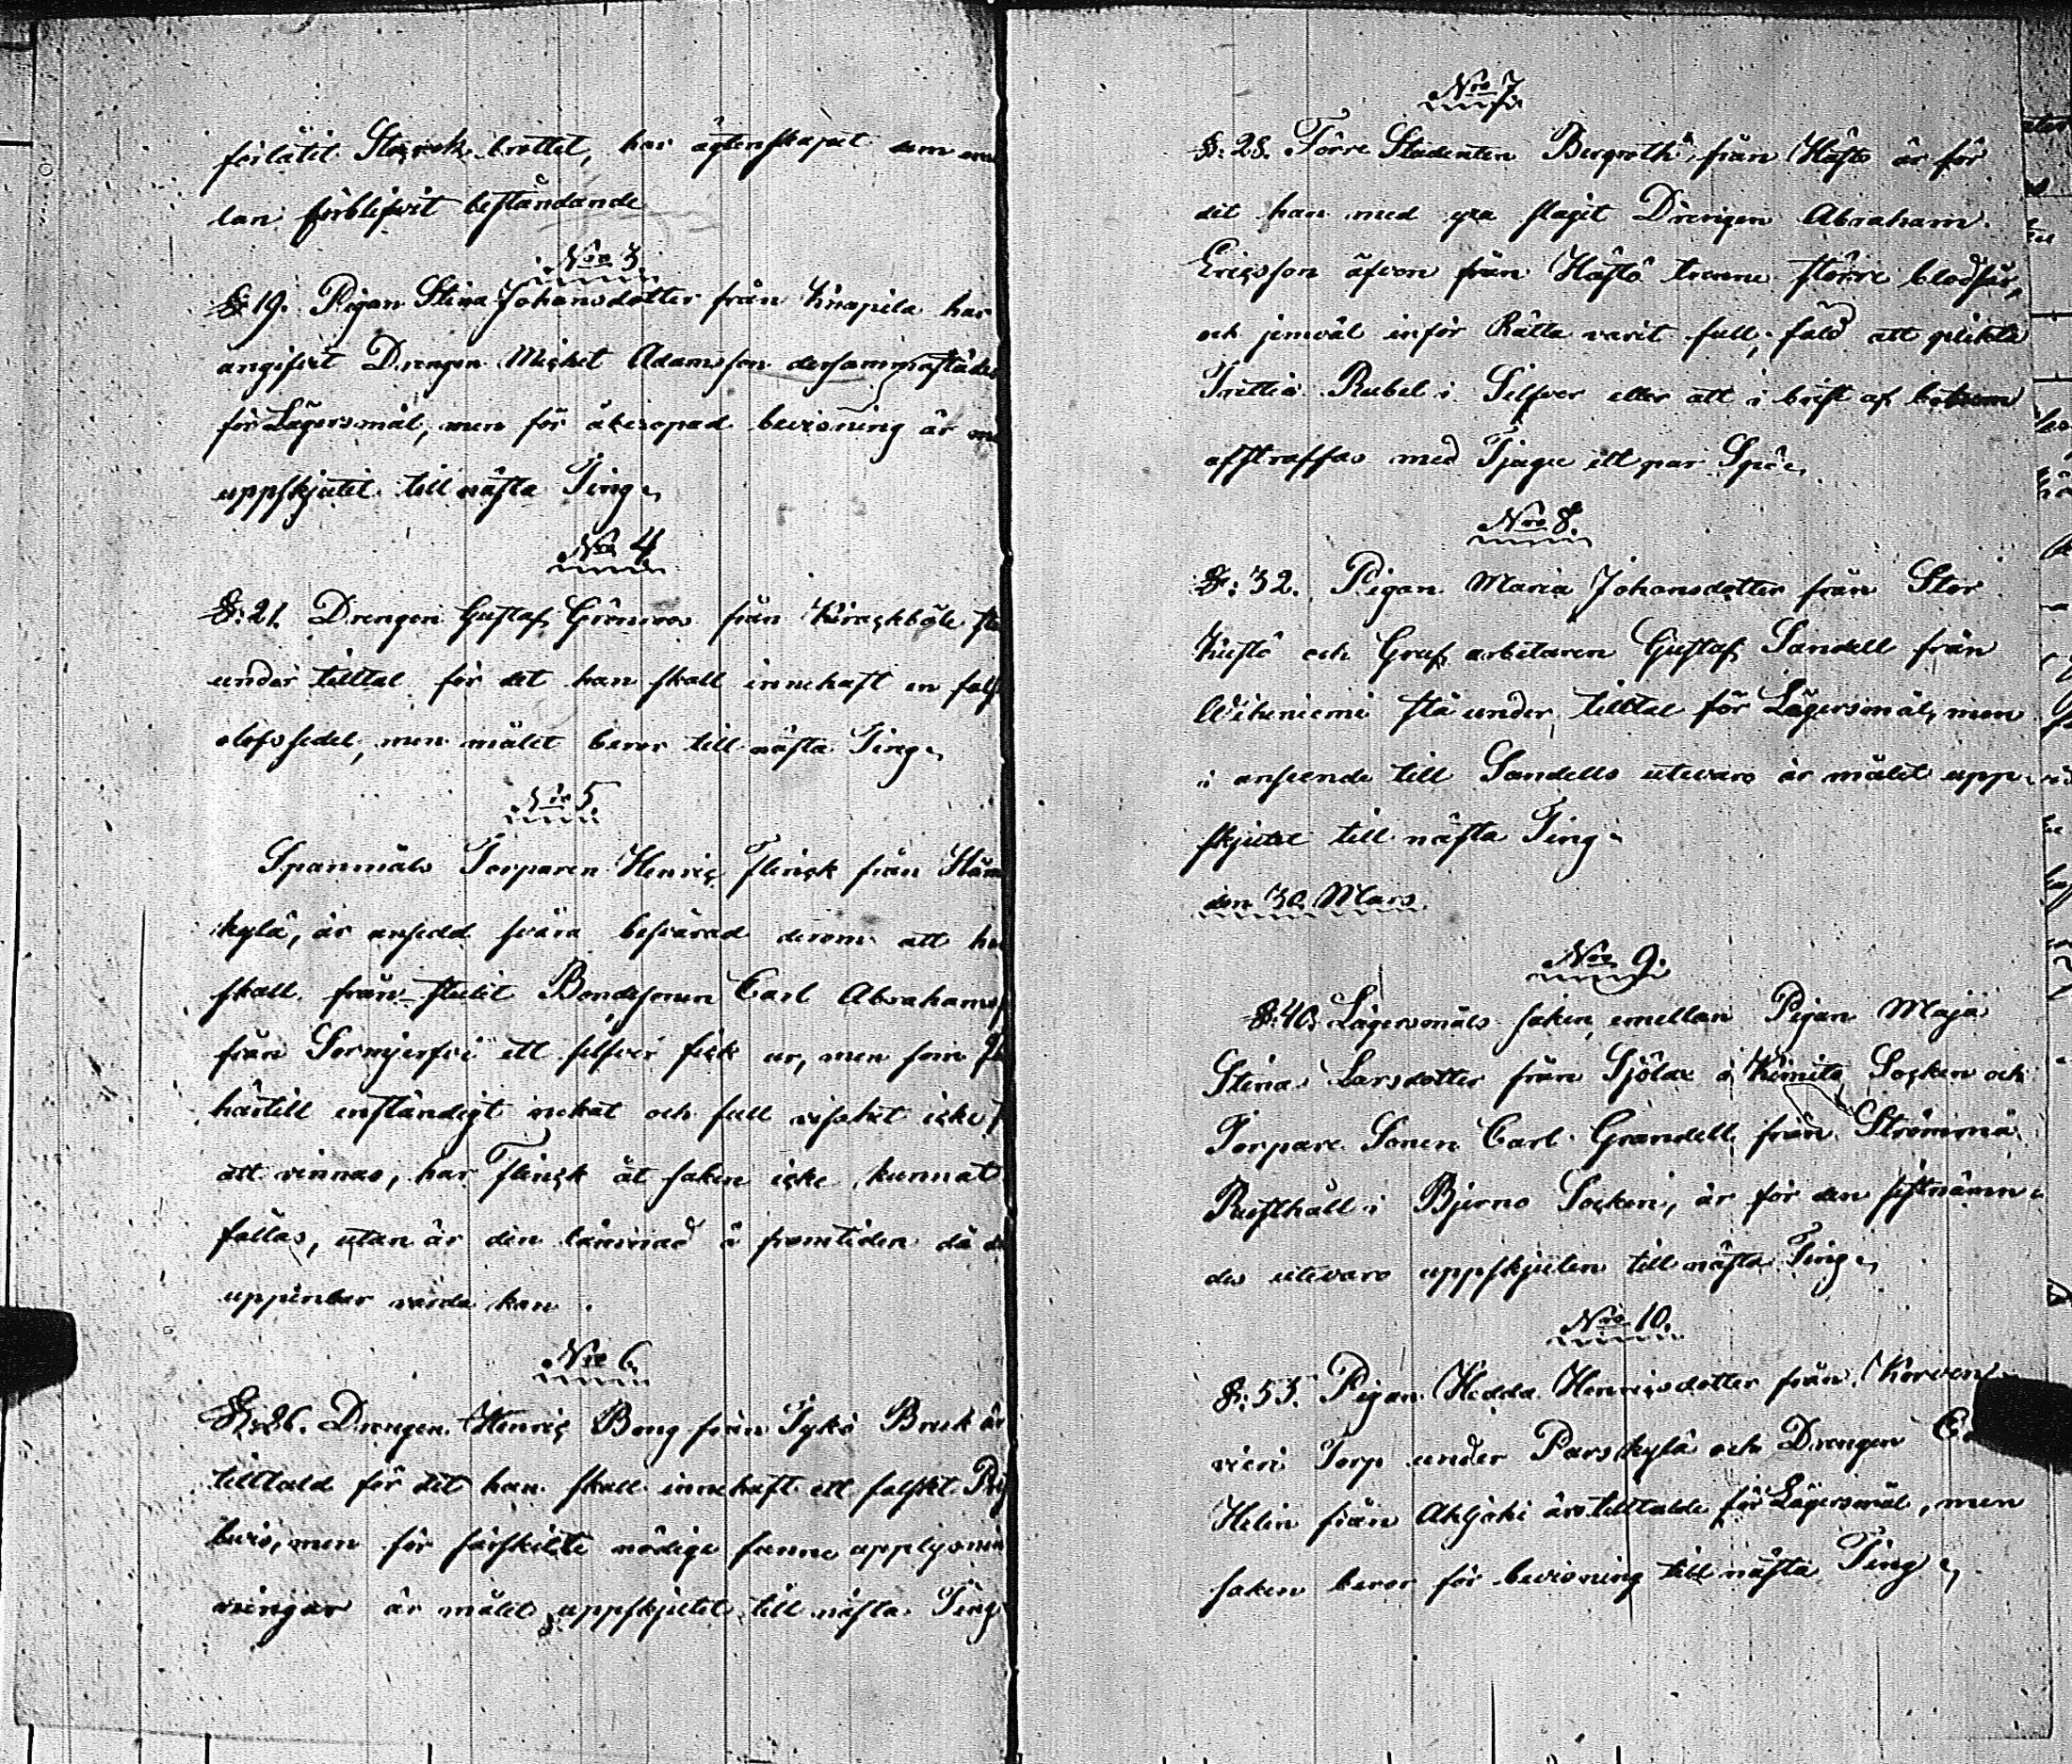 förlåtit Starck brottet, har ägtenskapet dem
lan förblifvit beståndande
Nro 3
§: 19. Pigan Stina Johansdotter från Knapila har
angifvit Drengen Michel Adamsson dersammastädes
för Lägersmål, men för åberopad bevisning är
uppskjutit till nästa Ting.
Nro 4
§: 21. Drengen Gustaf Grönroos från
under tilltal för det han skall innehaft en falsk
slofssedel, men målet beror till nästa Ting.
Nro 5.
Spanmåls Torparen Henric Flinck från
kylä, är ansedd svåra besvärad derom att
skall från stulit Bondesonen Carl Abrahams
från Sormjerfvi ett silfver fick ur, men som
härtill enständigt nekat och full visshet icke
att vinnas, har Flinck åt saken icke kunnat
fällas, utan är den lämnad å framtiden då
uppenbar varda kan.
Nro 6.
§: 26. Drengen Henric Bong från Tykö Bruk är
tilltald för det han skall innehaft ett falskt
bevis, men för särskilte nödige funne upplysnin
ningar är målet uppskjutet till nästa Ting
Nro 7.
§: 28. Förre Studenten Bergroth från Håstö är för
det han med yxa slagit Drengen Abraham
Ericsson äfven från Håstö trenne större blodsår,
och jemväl inför Rätta varit full, fäld att plikta
Trettio Rubel i Silfver eller att i brist af
afstraffas med Tjugu ett par Spö.
Nro 8.
§: 32. Pigan Maria Johansdotter från Stor
och Grufarbetaren Gustaf Sandell från
Wihiniemi stå under tilltal för Lägersmål, men
i anseende till Sandells utevaro är målet upp-
skjutet till nästa Ting.
den 30 Mars.
Nro 9.
§: 40. Lägersmåls saken emellan Pigan Maja
Stina Larsdotter från Sjölax i Kimito Socken och
Torpare Sonen Carl Grandell från Strömma
Rusthåll i Bjerno Socken, är för den sistnämn
des utevaro uppskjuten till nästa Ting.
Nro 10.
§: 53. Pigan Hedda Henricsdotter från Korven
vieri Torp under Parskylä och Drengen
Helin från Ahljoki äro tilltalde för Lägersmål, men
saken beror för bevisning till nästa Ting.